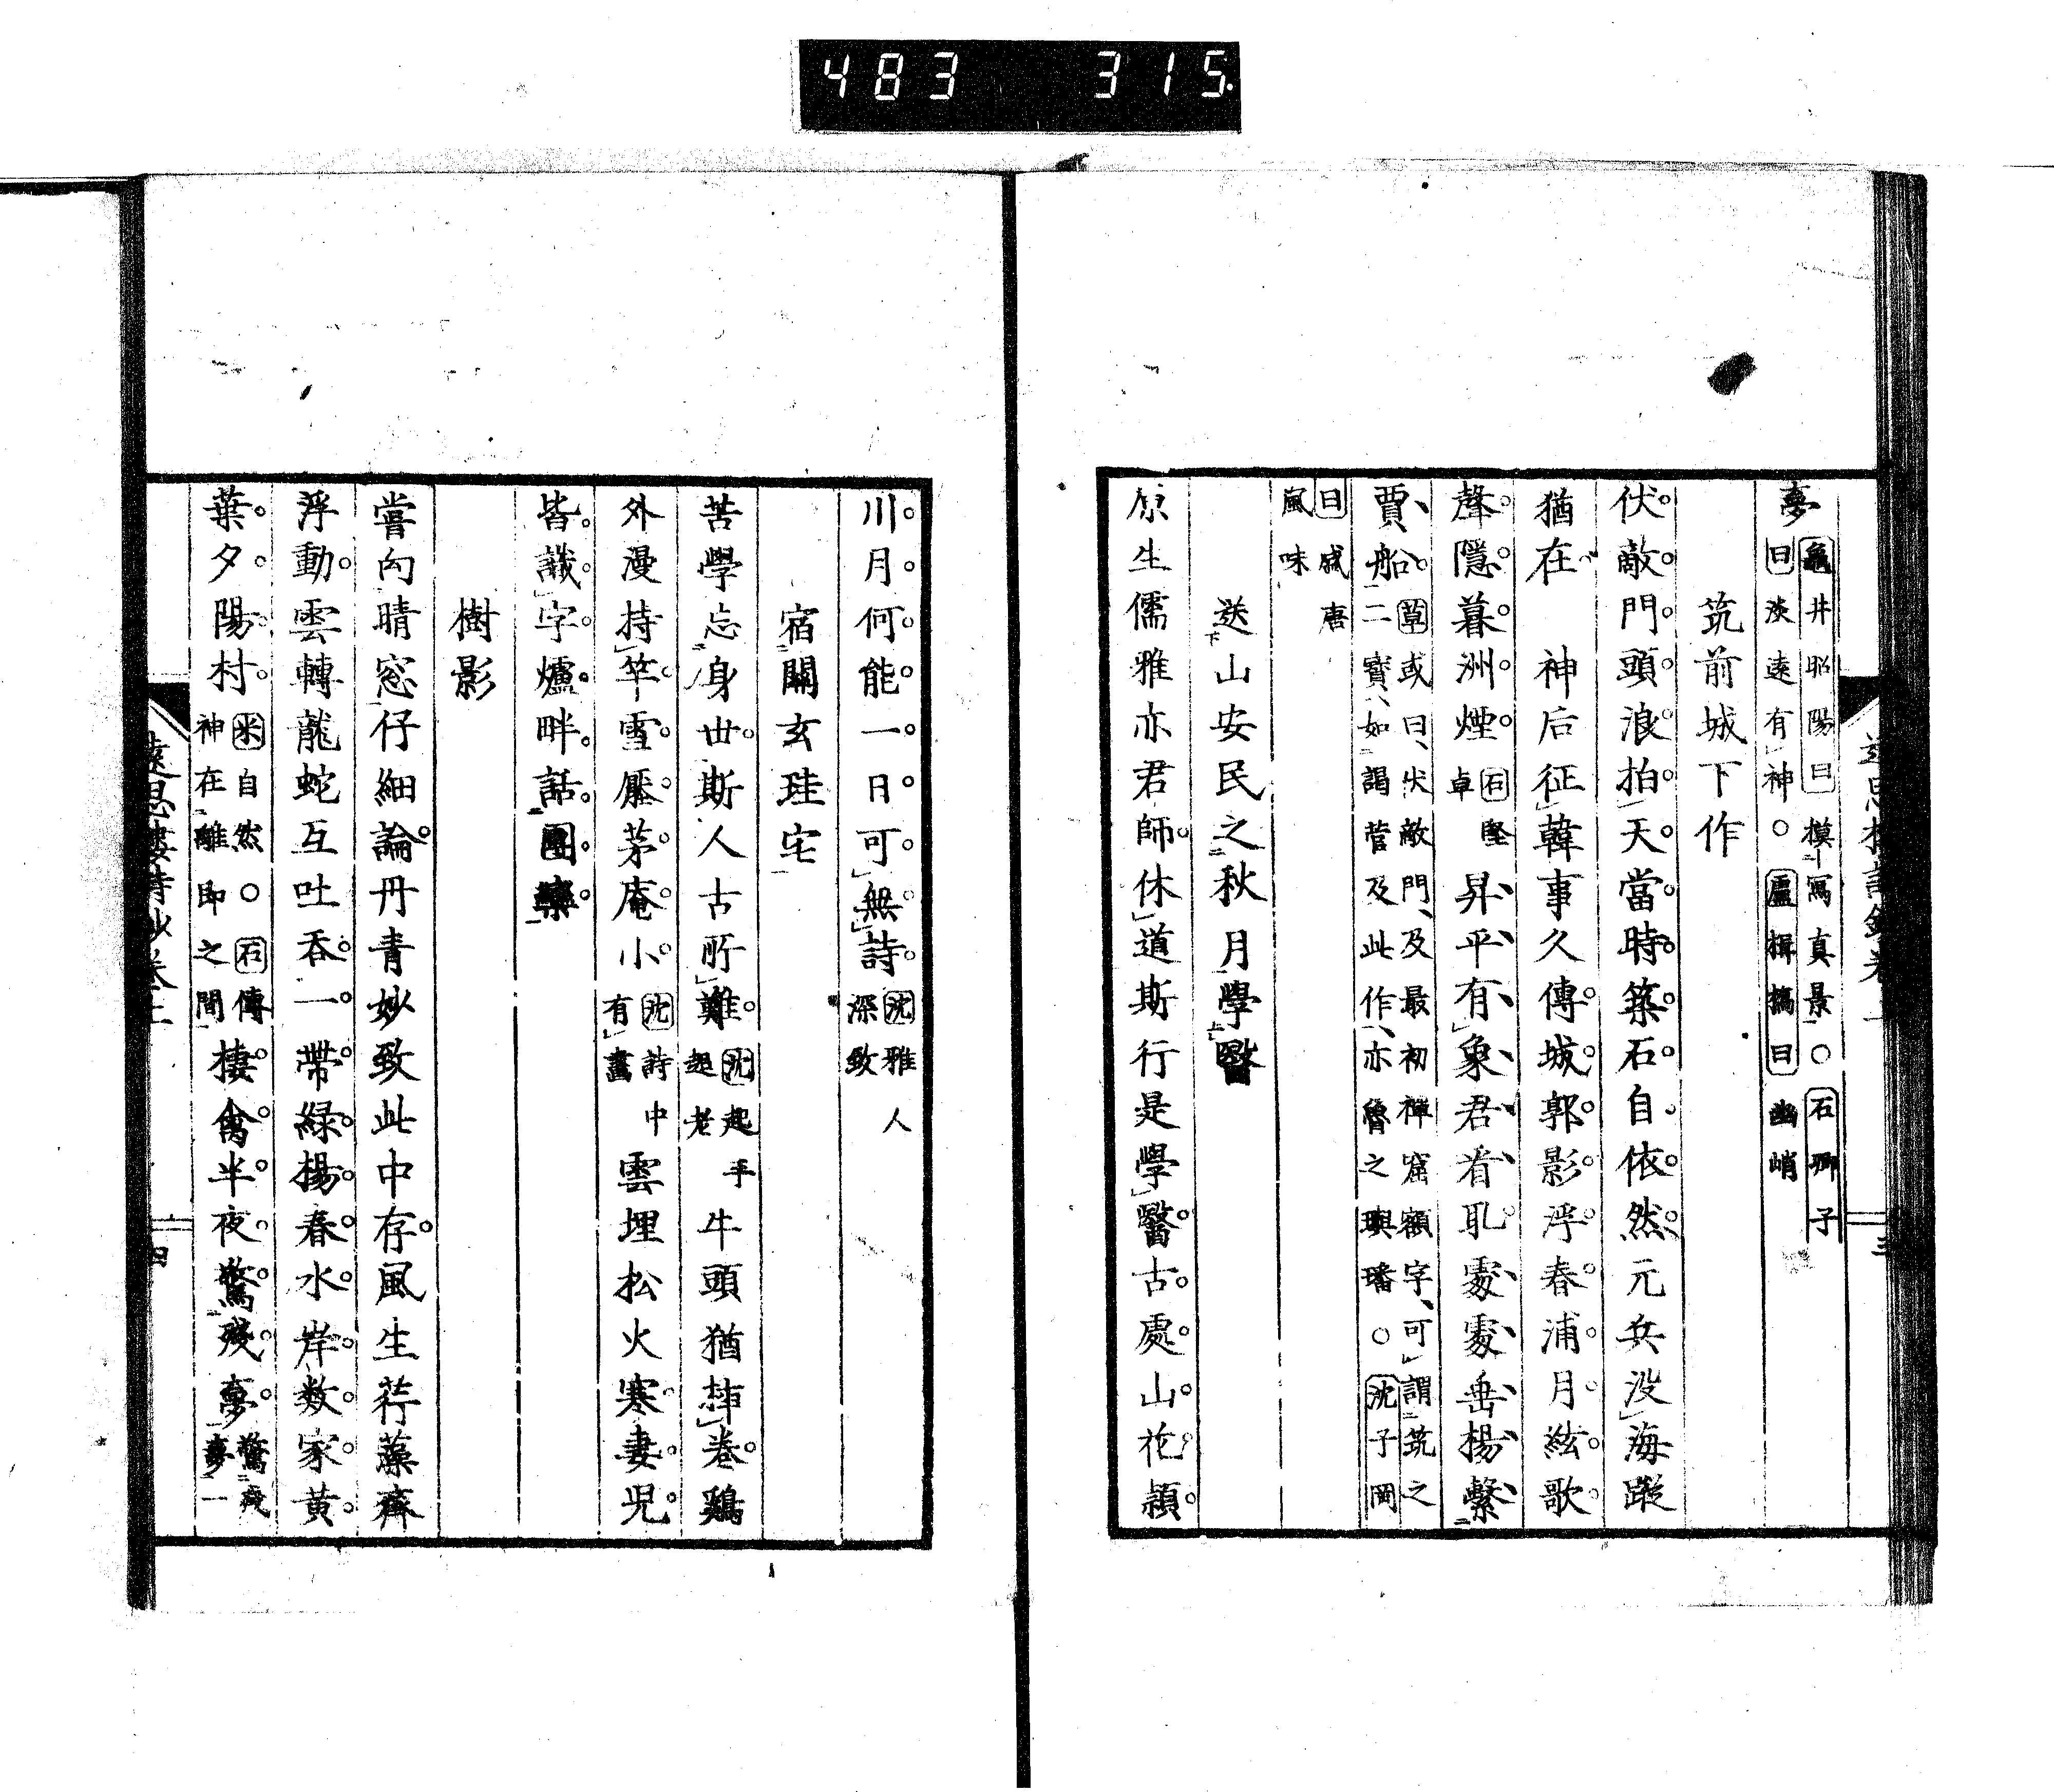 483 315
夢
龜井昭陽曰摸寫真景○石卿子
曰淡遠有神○盧楫撝曰幽峭
筑前城下作
伏敵門頭浪拍天當時築石自依然元兵没海蹤
猶在 神后征韓事久傳城郭影浮春浦月絃歌
聲隱暮洲煙
石堅
卓
昇平有象君看取處處垂楊繫
賈船
草或曰伏敵門及最初禪窟額字可謂筑之
二寶如謁菅及此作亦魯之璵璠○沈子岡
曰盛唐
風味
送山安民之秋月學醫
原生儒雅亦君師休道斯行是學醫古處山花頴
遠思樓詩鈔卷上
三
川月何能一日可無詩
沈雅人
深致
宿關玄珪宅
苦學忘身世斯人古所難
沈起手
超老
牛頭猶挿卷鷄
外漫持竿雪壓茅庵小
沈詩中
有畫
雲埋松火寒妻児
皆識字爐畔話團欒
樹影
嘗向晴窓仔細論丹青妙致此中存風生荇藻齊
浮動雲轉龍蛇互吐吞一帶緑楊春水岸数家黄
葉夕陽村
米自然○石傳
神在離即之間
棲禽半夜驚殘夢
驚殘
夢一
遠思樓詩鈔卷上
四